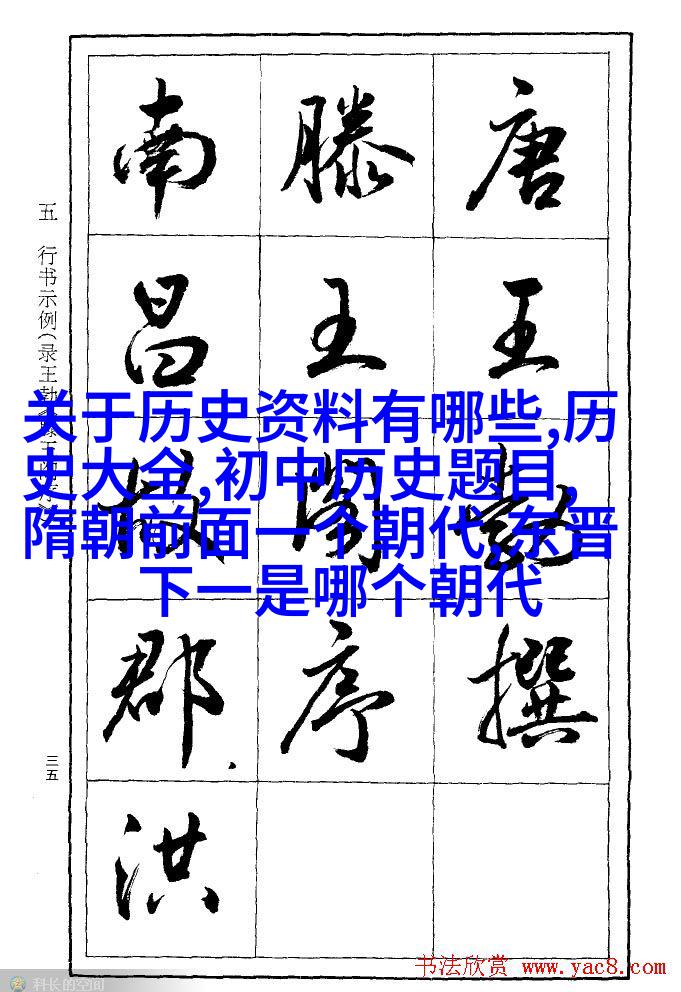 关于历史资料有哪些,历
史大全,初中历史题目,
隋朝前面一个朝代,东晋
下一是哪个朝代
唐王勃撰
滕王阁序
南昌故郡.洪
五 行书示例(录王勃
三五
书法欣赏 www.yac8.com
科长的空间